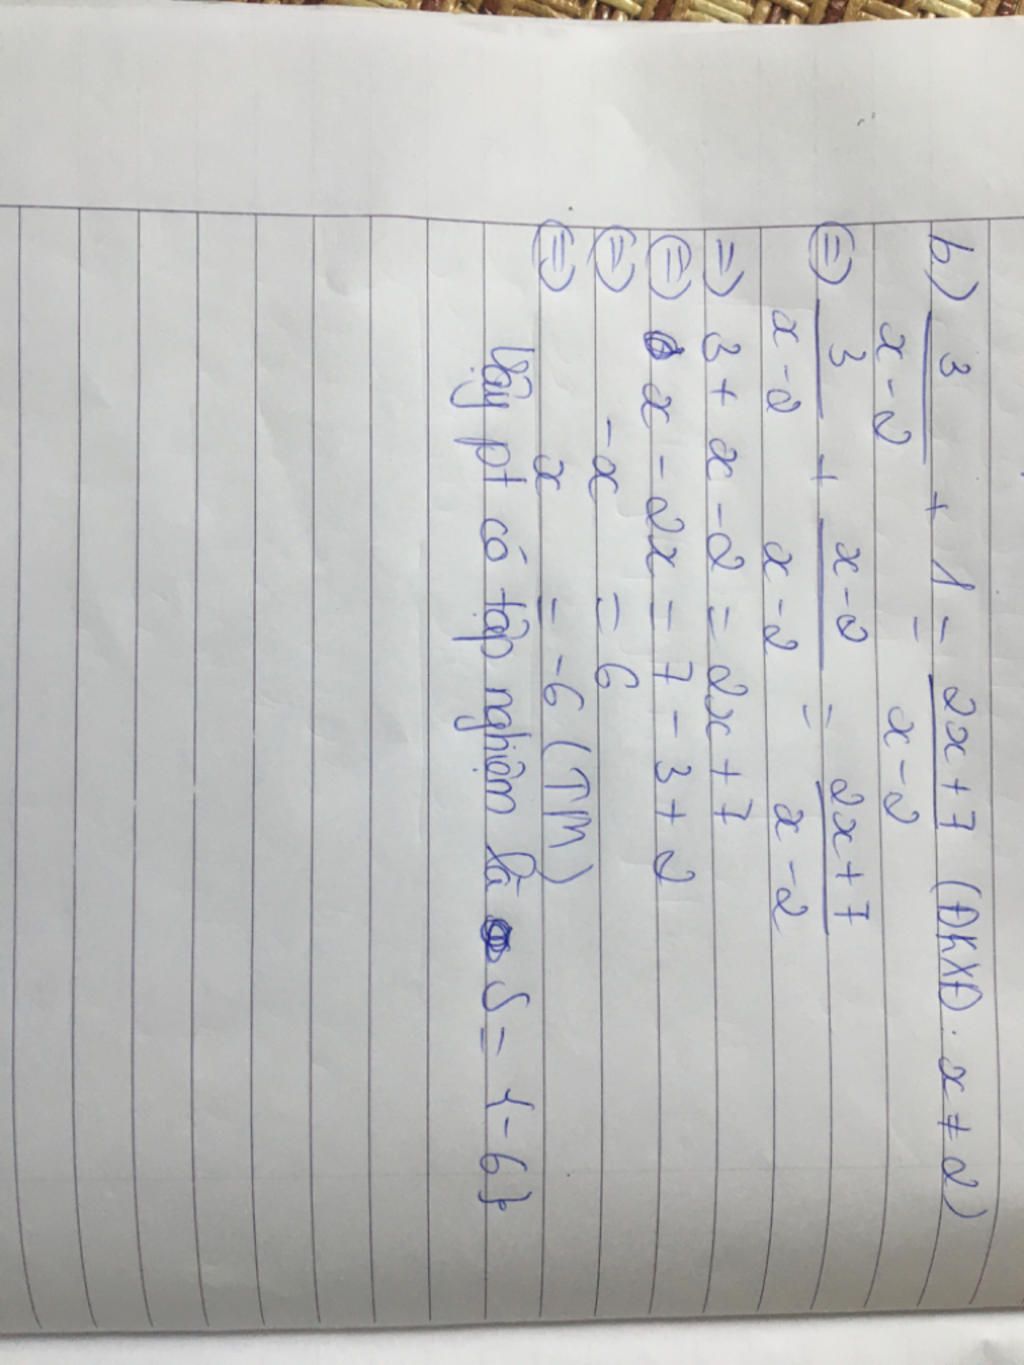 b) 3/(x-2) + 1 = (2x+7)/(x-2) (ĐKXĐ: x ≠ 2)
⇔ 3/(x-2) + (x-2)/(x-2) = (2x+7)/(x-2)
⇒ 3 + x - 2 = 2x + 7
⇔ x - 2x = 7 - 3 + 2
⇔ -x = 6
⇔ x = -6 (TM)
Vậy pt có tập nghiệm là S = {-6}